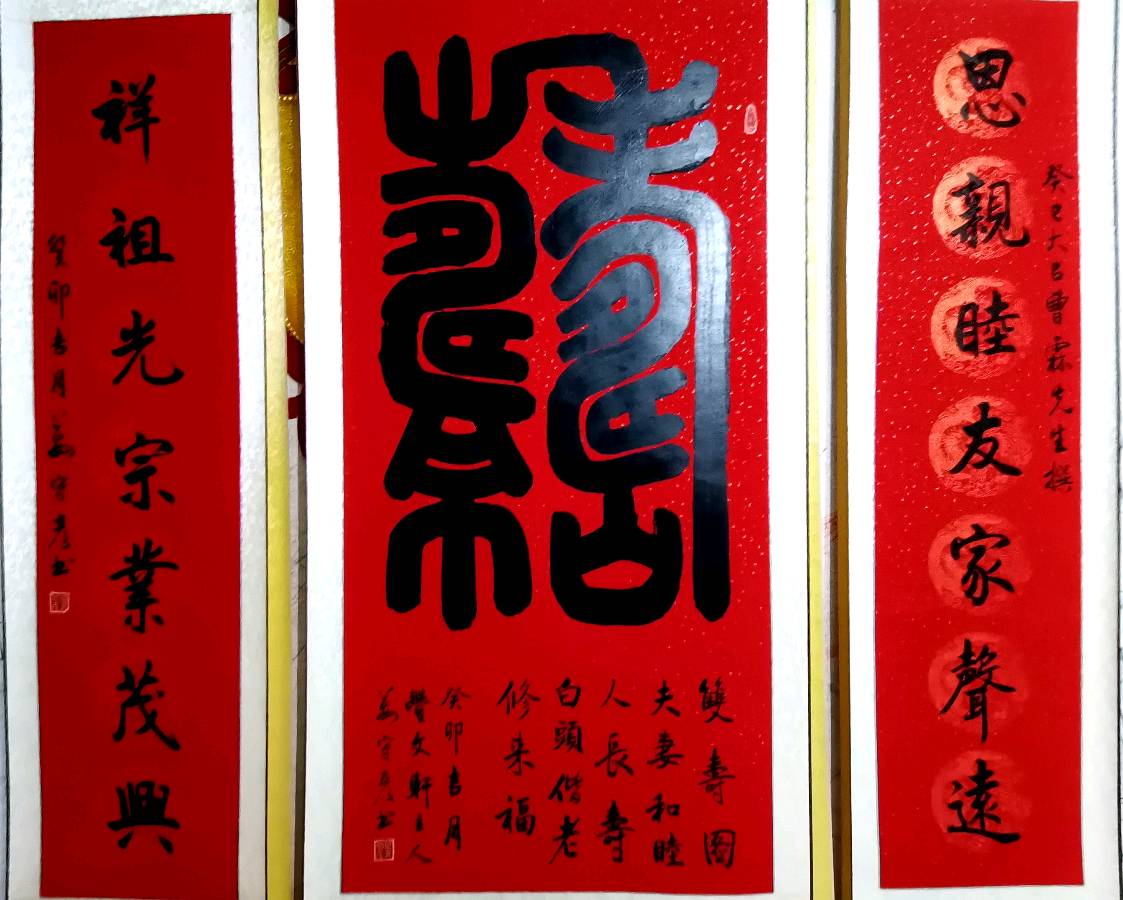 癸巳大吕曹霖先生撰
思親睦友家聲遠
雙壽圖
夫妻和睦
人長壽
白頭偕老
修来福
癸卯吉月
文軒主人
守彦书
祥祖光宗業茂興
癸卯吉月守彦书